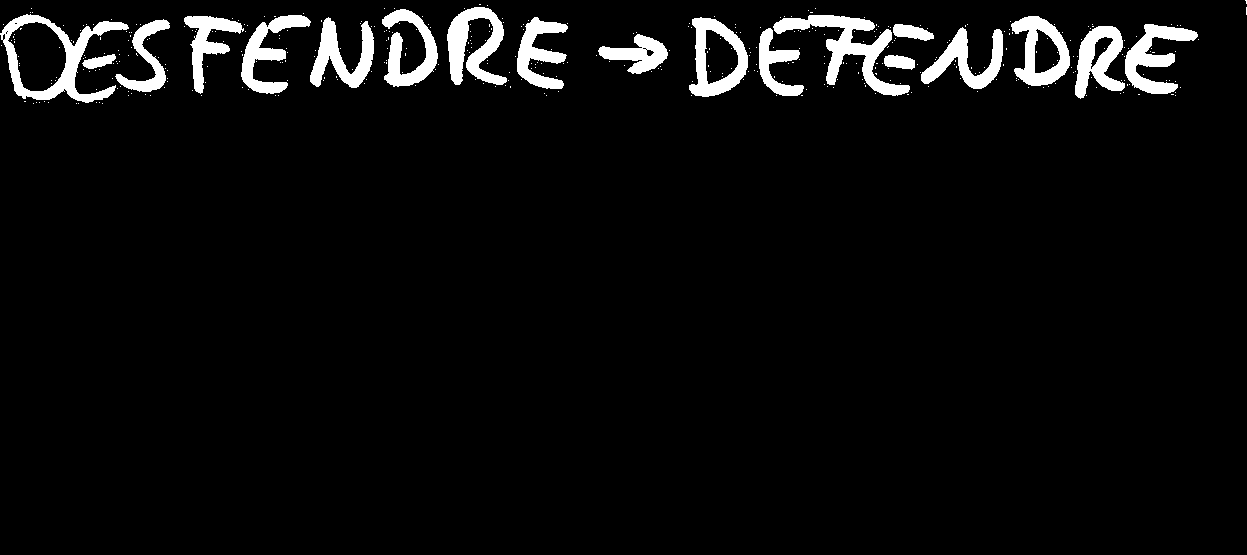 DESFENDRE → DEFENDRE